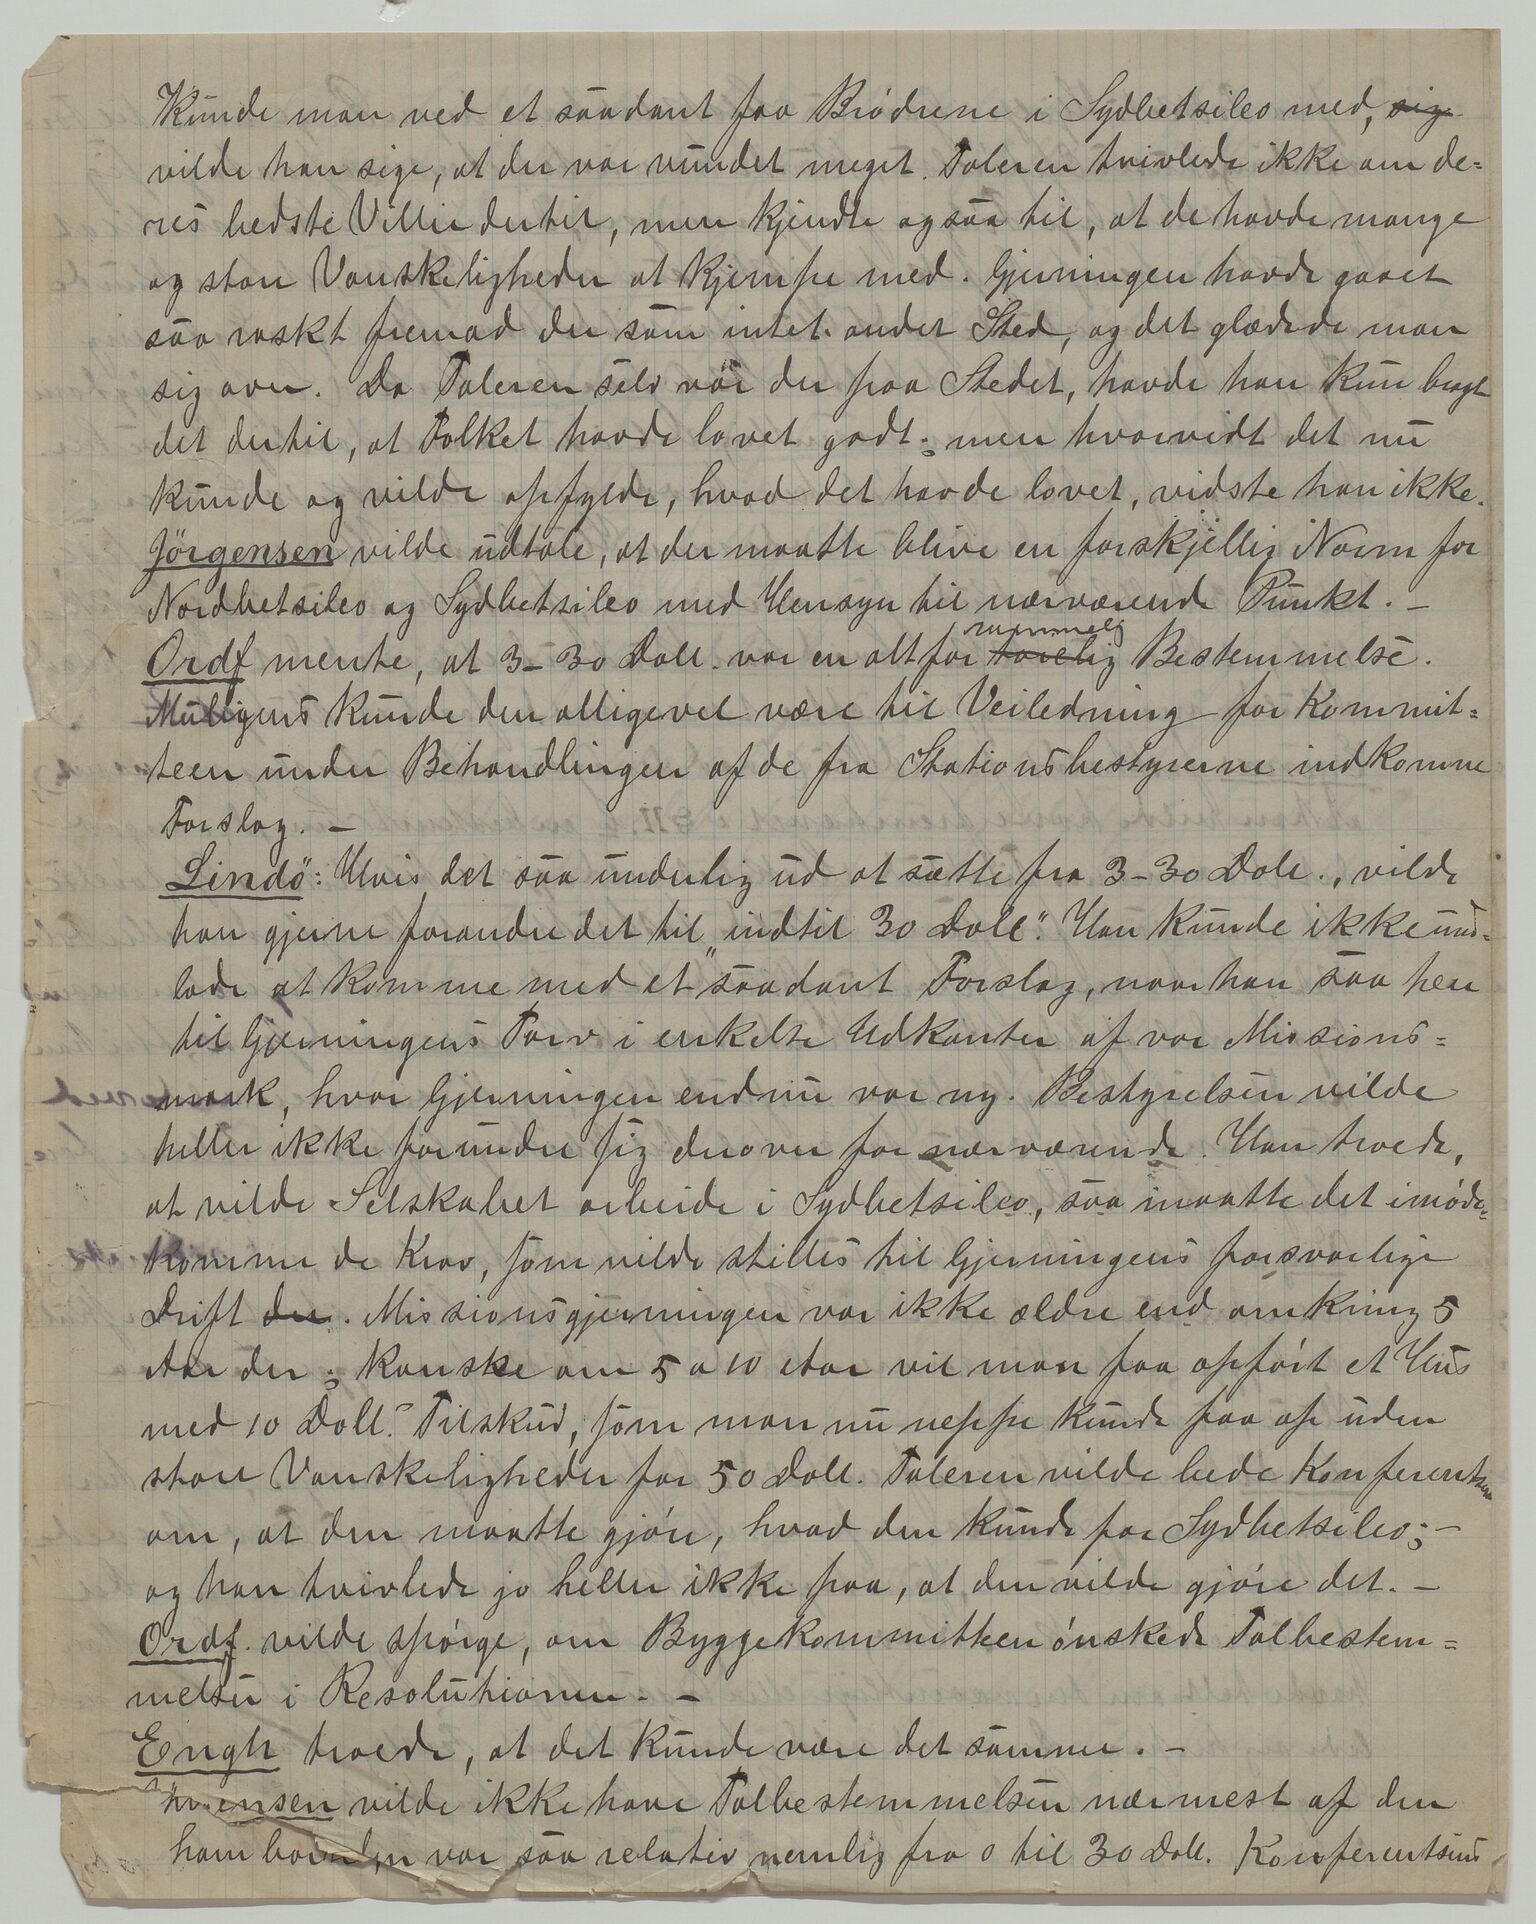 Kunde man ved et saadant faa Brødrene i Sydbetsileo med, sig
vilde han sige, at der var vundet meget. Taleren tvivlede ikke om de=
res bedste Villie dertil, men kjendte ogsaa til, at de havde mange
og store Vanskeligheder at kjempe med. Gjerningen havde gaaet
saa raskt fremad der som intet andet Sted, og det glædede man
sig over. Da Taleren selv var der paa Stedet, havde han kun bragt
det dertil, at Folket havde lovet godt; men hvorvidt det nu
kunde og vilde opfylde, hvad det havde lovet, vidste han ikke.
Jörgensen vilde udtale, at der maatte blive en forskjellig Norm for
Nordbetsileo og Sydbetsileo med Hensyn til nærværende Punkt. –
rummelig
Ordf mente, at 3–30 Doll. var en altfor Bestemmelse.
Muligens kunde den alligevel være til Veiledning for Kommit=
teen under Behandlingen af de fra Stationsbestyrerne indkomne
Forslag. –
Lindö: Hvis det saa underlig ud at sætte fra 3–30 Doll., vilde
han gjerne forandre det til „indtil 30 Doll“. Han kunde ikke und=
lade at komme med et saadant Forslag, naar han saa hen
til Gjerningens Tarv i enkelte Udkanter af vor Missions=
mark, hvor Gjerningen endnu var ny. Bestyrelsen vilde
heller ikke forundre sig derover for nærværende. Han troede,
at vilde Selskabet arbeide i Sydbetsileo, saa maatte det imøde=
komme de Krav, som vilde stilles til Gjerningens forsvarlige
Drift der. Missionsgjerningen var ikke ældre end omkring 5
Aar der; kanske om 5 a 10 Aar vil man faa opført et Hus
med 10 Doll. Tilskud, som man nu neppe kunde faa op uden
store Vanskeligheder for 50 Doll. Taleren vilde bede Konferentsen
om, at den maatte gjøre, hvad den kunde for Sydbetsileo; –
og han tvivlede jo heller ikke paa, at den vilde gjøre det. –
Ordf. vilde spørge, om Byggekommitteen ønskede Talbestem=
melser i Resolutionen. –
Engh troede, at det kunde være det samme. –
vilde ikke have Talbestemmelsen nærmest af den
var saa relativ nemlig fra 0 til 30 Doll. Konferentsens